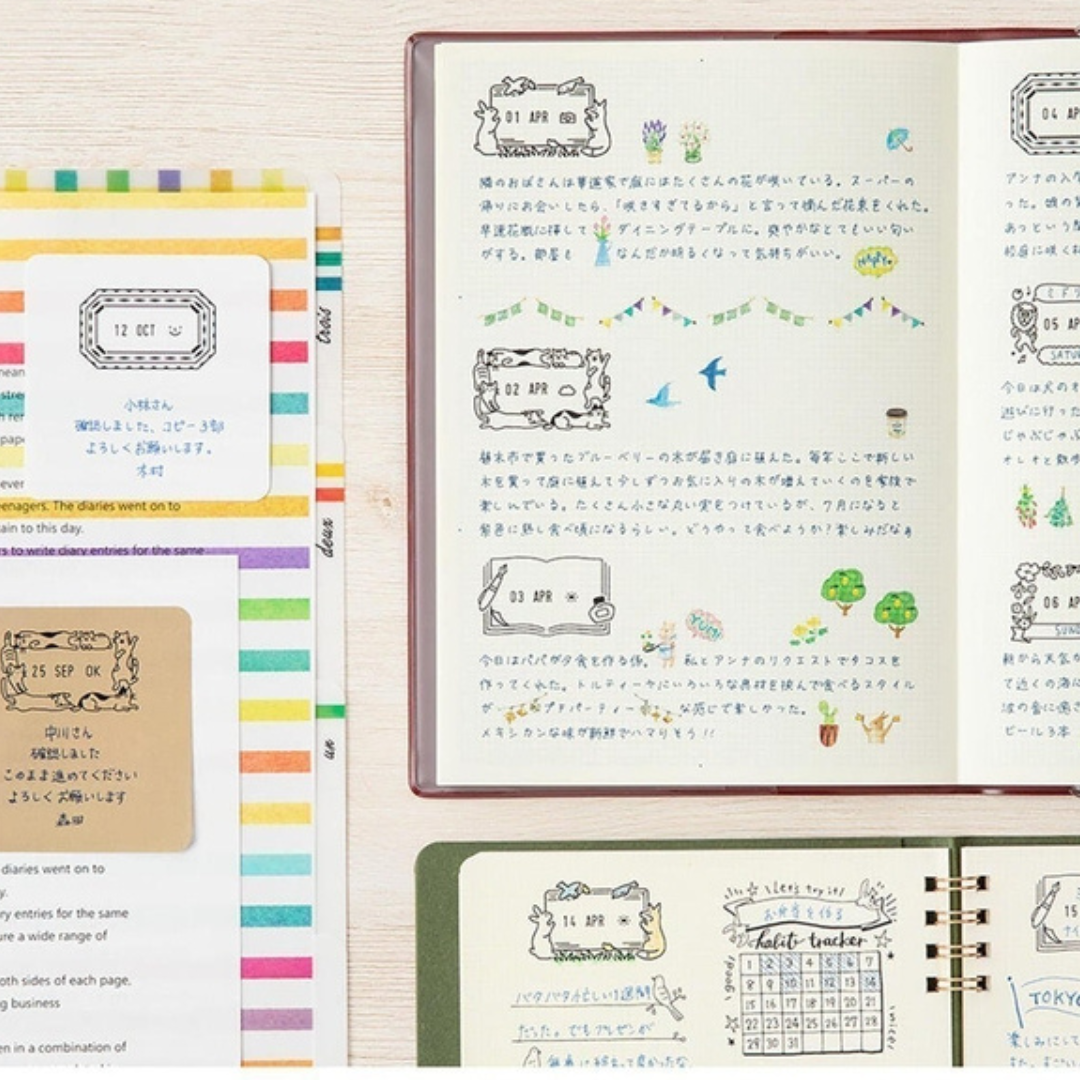 12 OCT
小林さん
確認しました、コピー3部
よろしくお願いします。
木村
trais
deux
un
mean
ever
eenagers. The diaries went on to
ain to this day.
rs to write diary entries for the same
25 SEP OK
中川さん
確認しました
このまま進めてください
よろしくお願いします
森田
diaries went on to
y.
ry entries for the same
ure a wide range of
oth sides of each page.
g business
en in a combination of
01 APR
隣のおばさんは華道家で庭にはたくさんの花が咲いている。スーパーの
帰りにお会いしたら、「咲きすぎてるから」と言って摘んだ花束をくれた。
早速花瓶に挿して ダイニングテーブルに。爽やかなとてもいい匂い
がする。部屋も なんだか明るくなって気持ちがいい。
HAPPY
02 APR
植木市で買ったブルーベリーの木が届き庭に植えた。毎年ここで新しい
木を買って庭に植えて少しずつお気に入りの木が増えていくのを家族で
楽しんでいる。たくさん小さな丸い実をつけているが、7月になると
紫色に熟し食べ頃になるらしい。どうやって食べようか?楽しみだなぁ
03 APR
YUM!
今日はパパが夕食を作る係。 私とアンナのリクエストでタコスを
作ってくれた。トルティーヤにいろいろな具材を挟んで食べるスタイル
が パーティー な感じで楽しかった。
メキシカンな味が新鮮でハマりそう!!
04 AP
アンナの入
った。娘の
あっという
校庭に咲く
ミドリ
05 AP
SATU
今日は犬の
遊びに行った
じゃぶじゃぶ
そしそと散歩
06 AP
SUND
朝から天気
て近くの海
波の音に
ビール3本
14 APR
バタバタ忙しい1週間
だった。でもプレゼンが
無事に終って良かったな
Let's try it!
お弁当を作る
habit tracker
1 2 3 4 5 6 7
8 9 10 11 12 13 14
15 16 17 18 19 20 21
22 23 24 25 26 27 28
29 30 31
15
TOKYO
楽しみにして